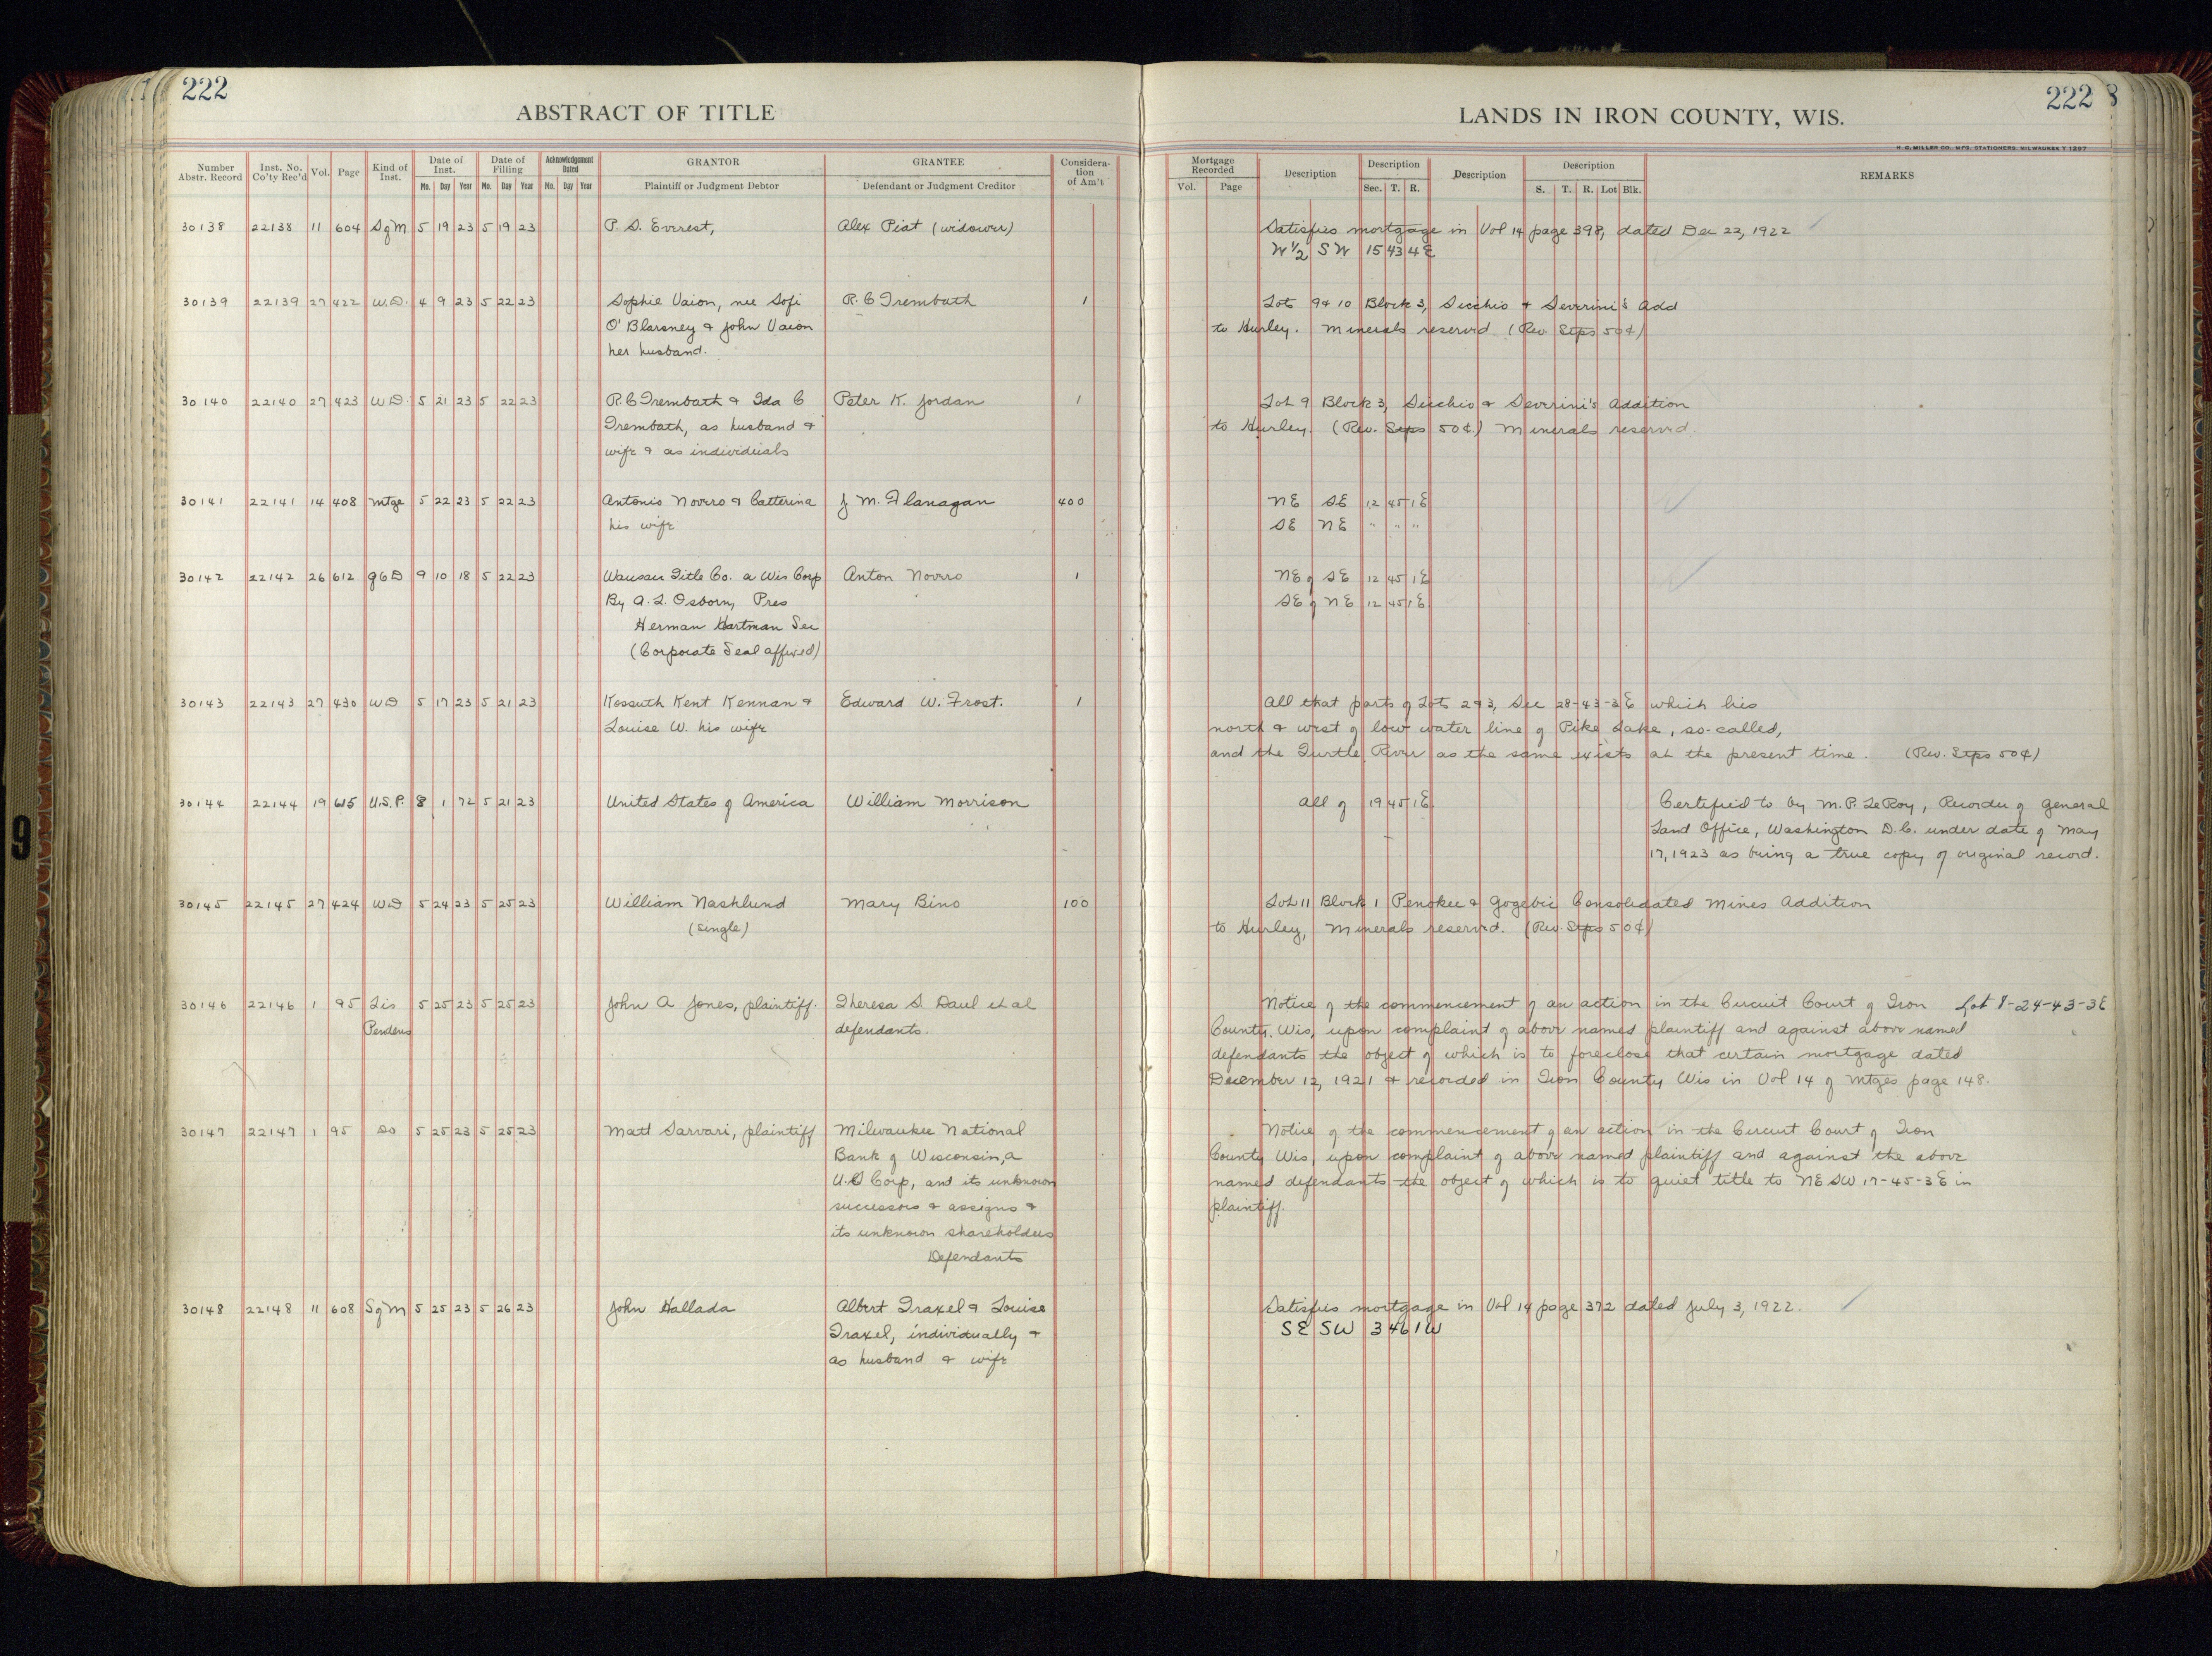 222
ABSTRACT OF TITLE
LANDS IN IRON COUNTY, WIS.
222 8
H. G. MILLER CO., MFG. STATIONERS, MILWAUKEE
Number Abstr. Record | Inst. No. Co'ty Rec'd | Vol. | Page | Kind of Inst. | Date of Inst. Mo. Day Year | Date of Filling Mo. Day Year | Acknowledgement Dated Mo. Day Year | GRANTOR Plaintiff or Judgment Debtor | GRANTEE Defendant or Judgment Creditor | Consideration of Am't | Mortgage Recorded Vol. Page | Description | Description Sec. T. R. | Description | Description S. T. R. Lot Blk. | REMARKS
30138 22138 11 604 SgM 5 19 23 5 19 23 P. S. Everest, Alex Piat (widower) Satisfies mortgage in Vol 14 page 398, dated Dec 22, 1922
W 1/2 SW 15 43 4E
30139 22139 27 422 W.D. 4 9 23 5 22 23 Sophie Vaion, nee Sofi R. C Trembath 1 Lots 9 & 10 Block 3, Sicchio & Severini's Add
O'Blarsney & John Vaion to Hurley. Minerals reserved (Rev. Stps 50¢)
her husband.
30140 22140 27 423 W D. 5 21 23 5 22 23 R. C Trembath & Ida C Peter K. Jordan 1 Lot 9 Block 3, Sicchio & Severini's Addition
Trembath, as husband & to Hurley. (Rev. Stps 50¢.) Minerals reserved.
wife & as individuals
30141 22141 14 408 Mtge 5 22 23 5 22 23 Antonio Noviro & Catterina J M. Flanagan 400 NE SE 12 45 1E
his wife SE NE " " "
30142 22142 26 612 QCD 9 10 18 5 22 23 Wausau Title Co. a Wis Corp Anton Noviro 1 NE of SE 12 45 1E
By A. L. Osborn, Pres SE of NE 12 45 1E
Herman Hartman Sec
(Corporate Seal affixed)
30143 22143 27 430 WD 5 17 23 5 21 23 Kossuth Kent Kennan & Edward W. Frost. 1 All that parts of Lots 2 & 3, Sec 28-43-3E which lies
Louise W. his wife north & west of low water line of Pike Lake, so-called,
and the Turtle River as the same exists at the present time. (Rev. Stps 50¢)
30144 22144 19 615 U.S.P. 8 1 72 5 21 23 United States of America William Morrison All of 19 45 1E. Certified to by M. P. LeRoy, Recorder of General
Land Office, Washington D.C. under date of May
17, 1923 as being a true copy of original record.
30145 22145 27 424 WD 5 24 23 5 25 23 William Nashlund Mary Bino 100 Lot 11 Block 1 Penokee & Gogebic Consolidated Mines Addition
(single) to Hurley, Minerals reserved. (Rev. Stps 50¢)
30146 22146 1 95 Lis 5 25 23 5 25 23 John A Jones, plaintiff. Theresa S Daul et al Notice of the commencement of an action in the Circuit Court of Iron Lot 8-24-43-3E
Pendens defendants. County, Wis, upon complaint of above named plaintiff and against above named
defendants the object of which is to foreclose that certain mortgage dated
December 12, 1921 & recorded in Iron County Wis in Vol 14 of Mtges page 148.
30147 22147 1 95 Do 5 25 23 5 25 23 Matt Sarvari, plaintiff Milwaukee National Notice of the commencement of an action in the Circuit Court of Iron
Bank of Wisconsin, a County Wis, upon complaint of above named plaintiff and against the above
U.S Corp, and its unknown named defendants the object of which is to quiet title to NE SW 17-45-3E in
successors & assigns & plaintiff.
its unknown shareholders
Defendants
30148 22148 11 608 SgM 5 25 23 5 26 23 John Hallada Albert Traxel & Louise Satisfies mortgage in Vol 14 page 372 dated July 3, 1922.
Traxel, individually & SE SW 3 46 1W
as husband & wife
9